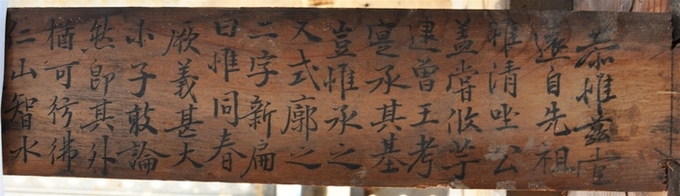 恭惟玆堂
遂自先祖
惟清坐公
盖嘗攸芋
逮曾王考
寔承其基
豈惟承之
又式廓之
二字新扁
曰惟同春
厥義甚大
小子敢論
然卽其外
猶可彷彿
仁山智水